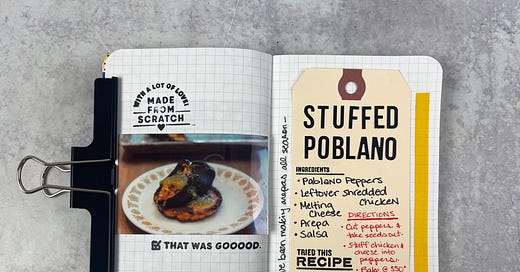 WITH A LOT OF LOVE!
MADE
FROM
SCRATCH
THAT WAS GOOOOD.
been making arepas all season-
STUFFED
POBLANO
INGREDIENTS
• Poblano Peppers
• Leftover shredded
Chicken
• Melting
Cheese
• Arepa
• Salsa
DIRECTIONS
• Cut peppers &
take seeds out.
• Stuff chicken &
cheese into
peppers.
• Bake @ 350°
TRIED THIS
RECIPE